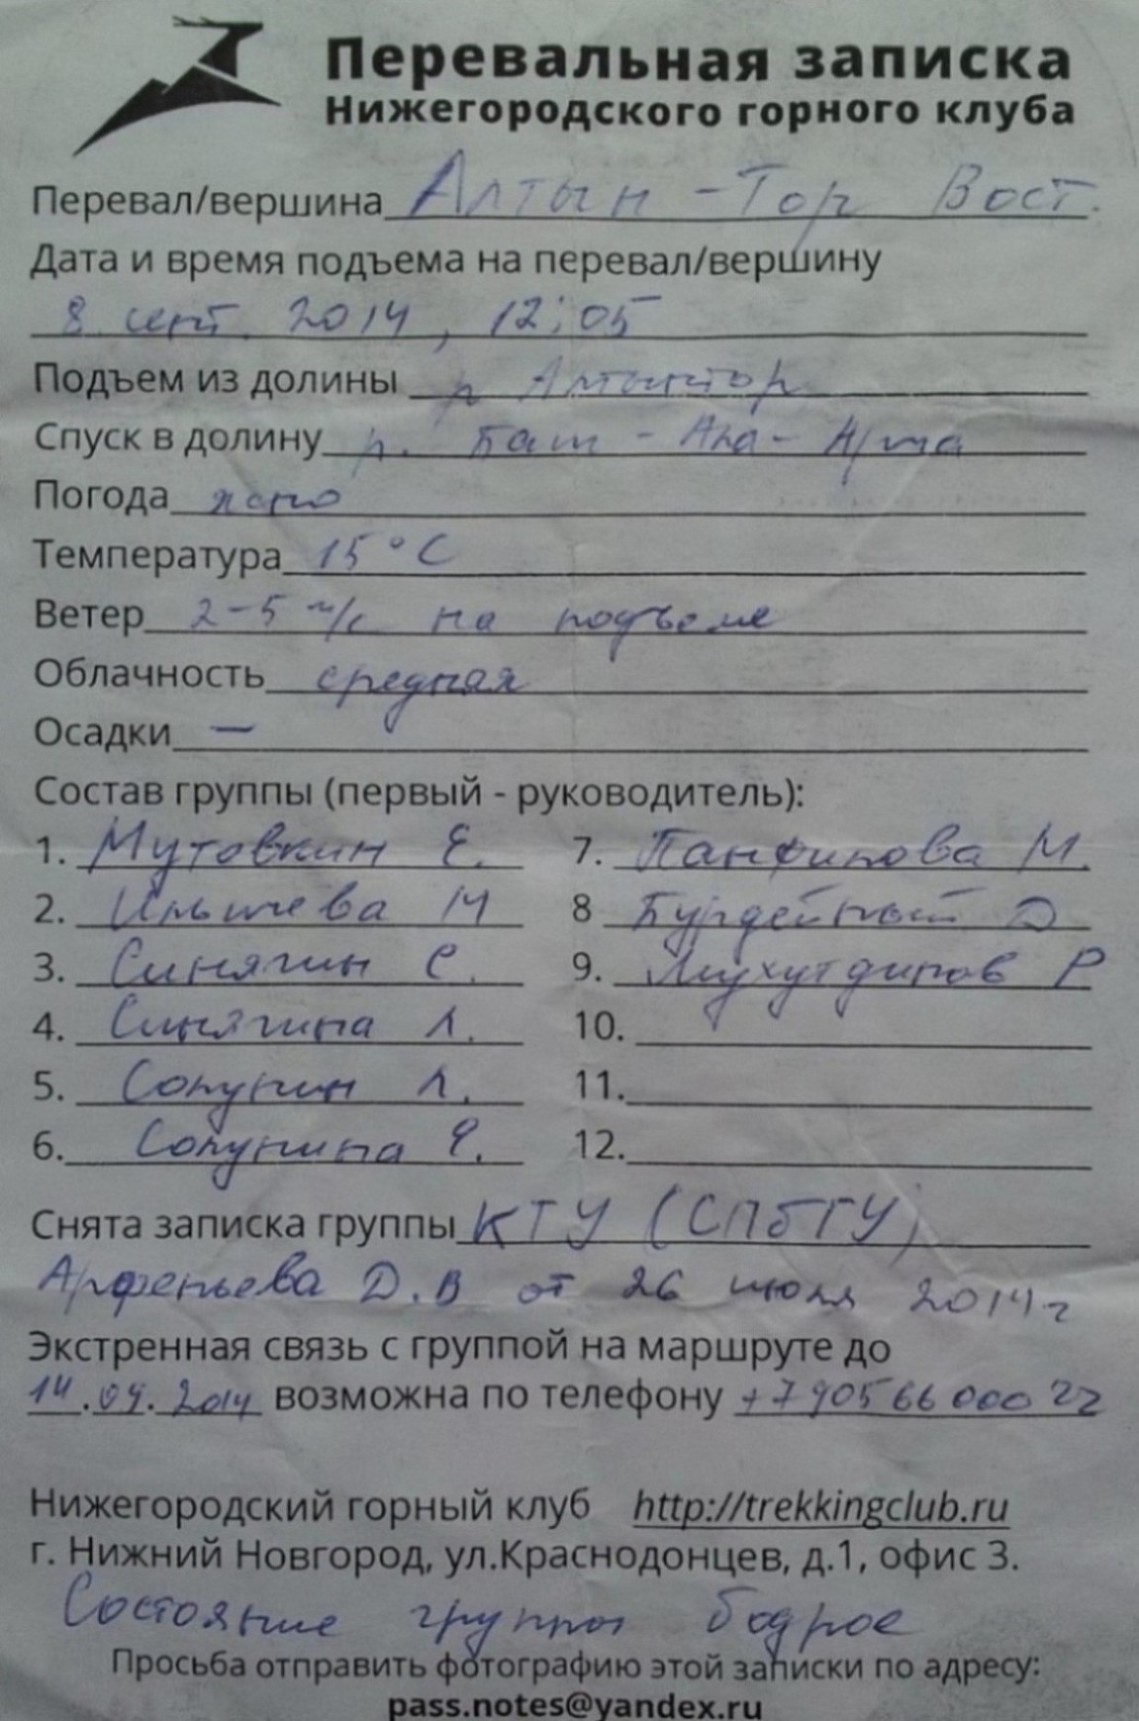 Перевальная записка
Нижегородского горного клуба
Перевал/вершина Алтын-Тор Вост.
Дата и время подъема на перевал/вершину
8 сент. 2014, 12:05
Подъем из долины р Алтынтор
Спуск в долину р. Баш-
Погода ясно
Температура 15°C
Ветер 2-5 м/с на подъеме
Облачность средняя
Осадки —
Состав группы (первый - руководитель):
1. Мутовкин Е. 7. Панфилова М.
2. М 8 Бурдейный D
3. Синягин С. 9. Мухутдинов Р
4. Синягина Л. 10.
5. Сопунин Л. 11.
6. Сопунина Е. 12.
Снята записка группы КТУ (СПбГУ)
Арфеньева Д.В от 26 июля 2014 г
Экстренная связь с группой на маршруте до
14.09.2014 возможна по телефону +7 905 66 000 22
Нижегородский горный клуб http://trekkingclub.ru
г. Нижний Новгород, ул.Краснодонцев, д.1, офис 3.
Состояние группы бодрое
Просьба отправить фотографию этой записки по адресу:
pass.notes@yandex.ru